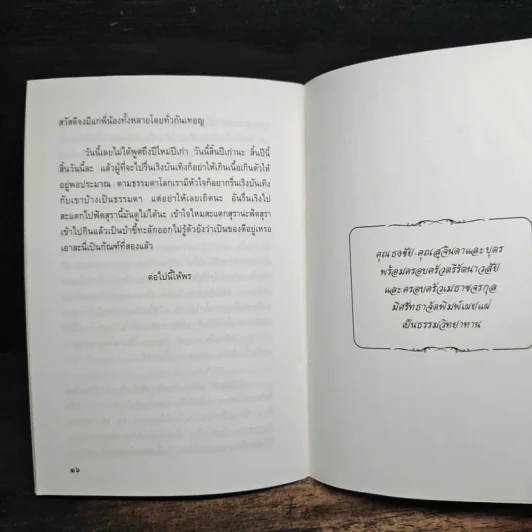 สวัสดีจงมีแก่พี่น้องทั้งหลายโดยทั่วกันเทอญ
วันนี้เลยไม่ได้พูดถึงปีใหม่ปีเก่า วันนี้สิ้นปีเก่านะ สิ้นปีนี้
สิ้นวันนี้ละ แล้วผู้ที่จะไปรื่นเริงบันเทิงก็อย่าให้เกินเนื้อเกินตัวให้
อยู่พอประมาณ ตามธรรมดาโลกเรามีหัวใจก็อยากรื่นเริงบันเทิง
กับเขาบ้างเป็นธรรมดา แต่อย่าให้เลยเถิดนะ อันรื่นเริงไป
สะแตกไปฟัดสุรานี้มันดูไม่ได้นะ เข้าใจไหมสะแตกสุราน่ะฟัดสุรา
เข้าไปกินแล้วเป็นบ้าขี้ทะลักออกไม่รู้ตัวยังว่าเป็นของดีอยู่เหรอ
เอาละนี่เป็นกัณฑ์ที่สองแล้ว
ต่อไปนี้ให้พร
๑๖
คุณธงชัย-คุณสุจินดาและบุตร
พร้อมครอบครัวตรีรัตนาวลัย
และครอบครัวเมธาขจรกุล
มีศรัทธาจัดพิมพ์เผยแผ่
เป็นธรรมวิทยาทาน